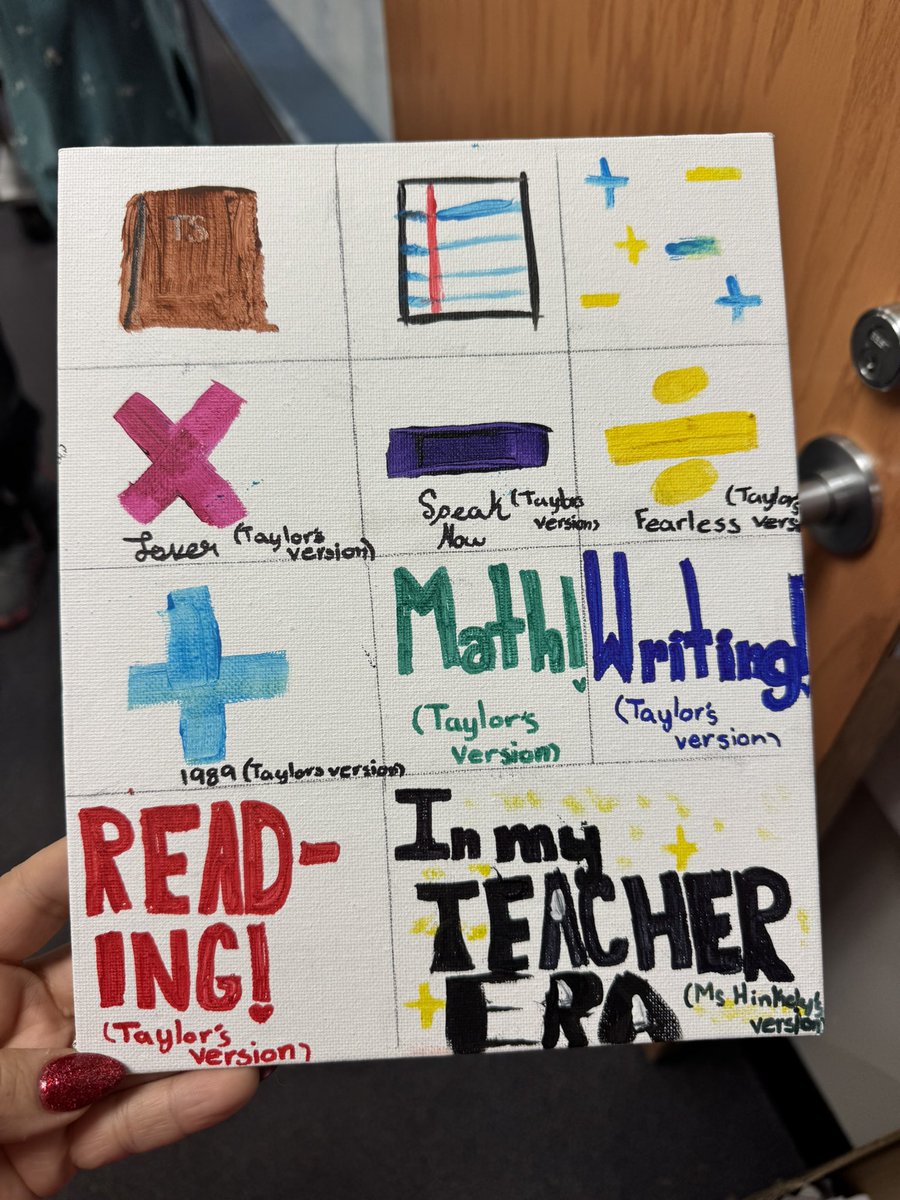 TS
Lover (Taylor's
version)
Speak (Taylor's
Now version)
Fearless (Taylor's
version)
1989 (Taylors version)
Math!
(Taylor's
version)
Writing!
(Taylor's
version)
READ-
ING!
(Taylor's
version)
In my
TEACHER
ERA
(Ms Hinkely's
version)